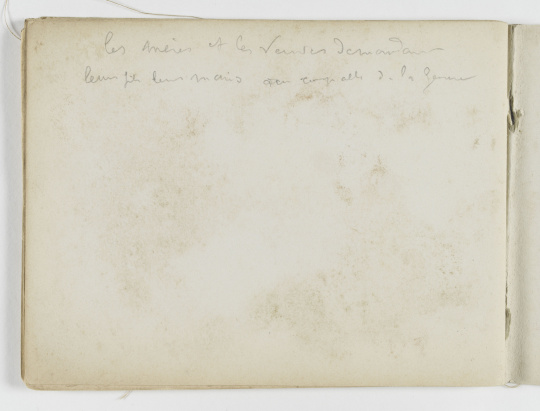 les mères et les veuves demandant
leurs fils leurs maris aux coupables de la guerre